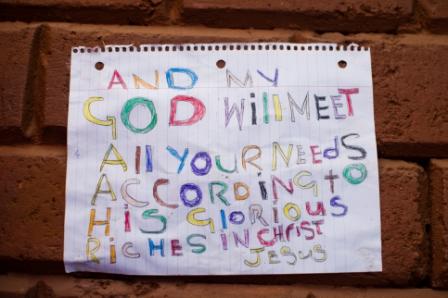 AND MY
GOD Will MEET
All YOUR NEEdS
ACCORDiNG to
HiS GlORiOUS
RiCHES IN CHRiST
JESUS